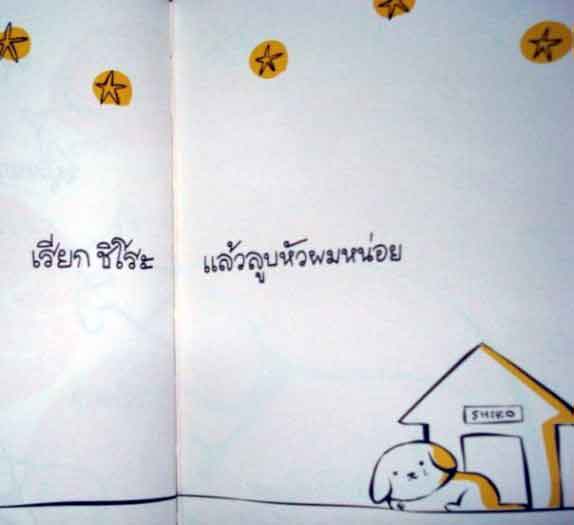 เรียก ชิโระ แล้วลูบหัวผมหน่อย
SHIRO